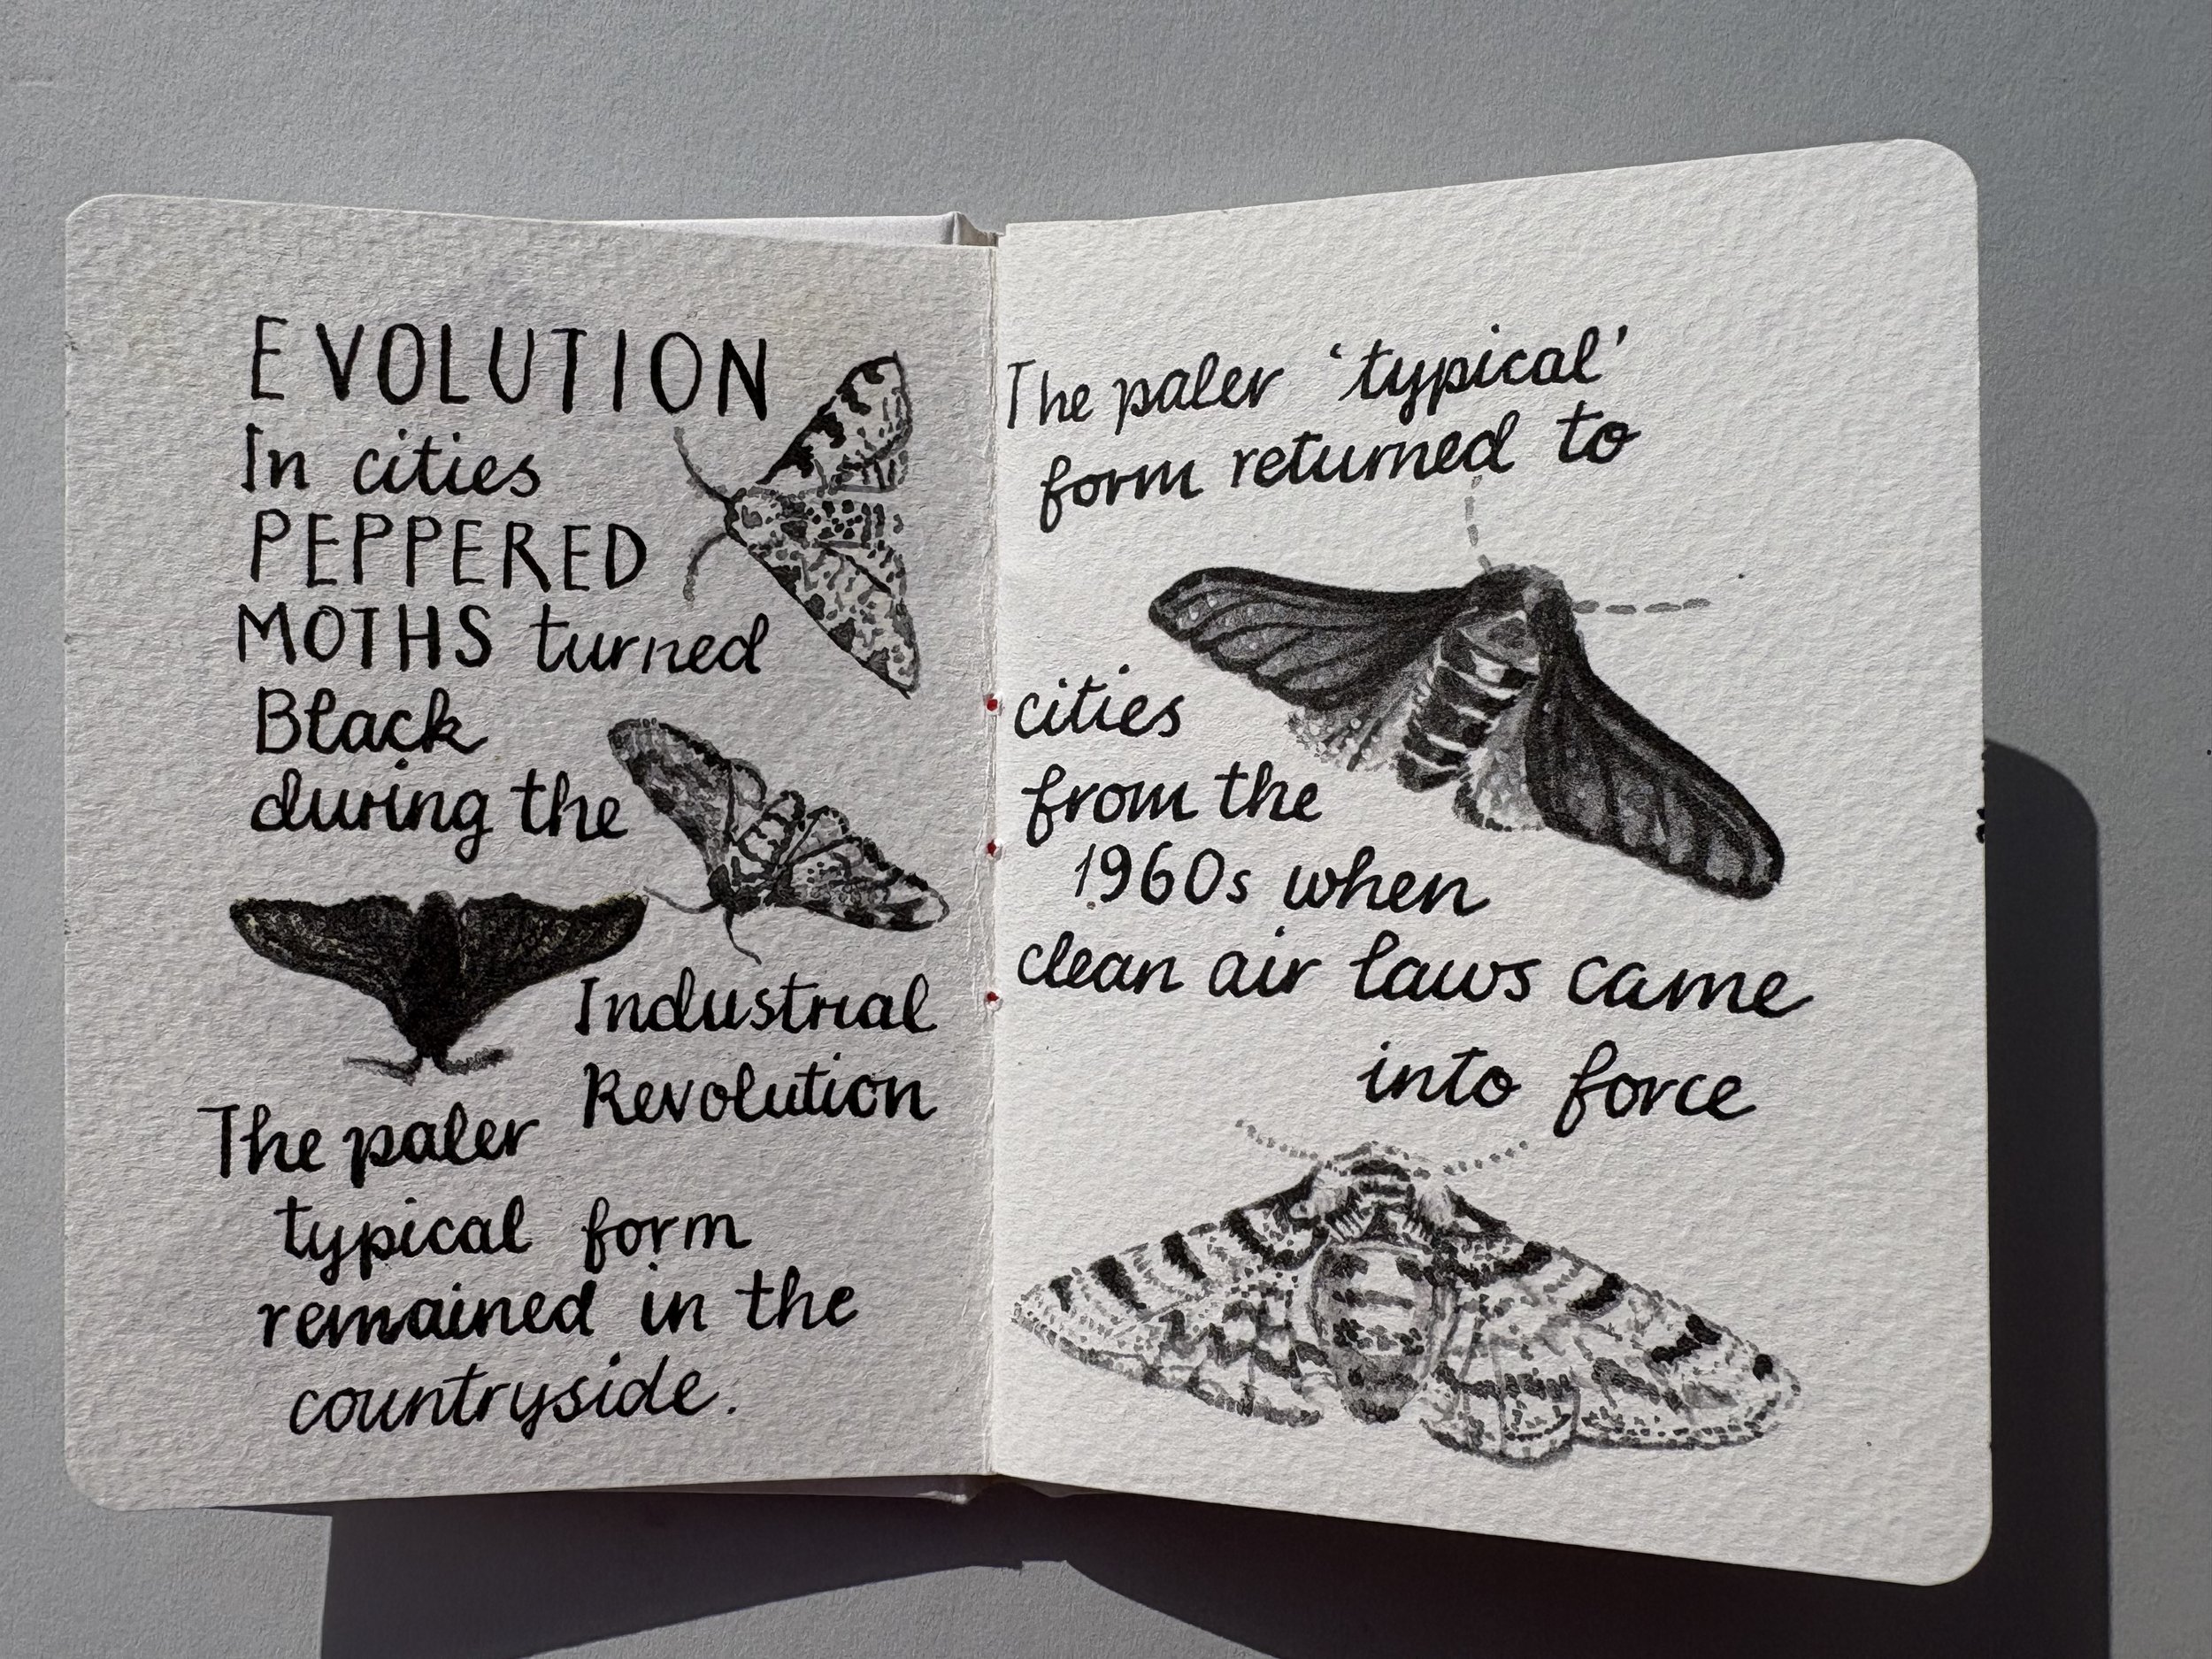 EVOLUTION
In cities
PEPPERED
MOTHS turned
Black
during the
Industrial
Revolution
The paler
typical form
remained in the
countryside.
The paler 'typical'
form returned to
cities
from the
1960s when
clean air laws came
into force